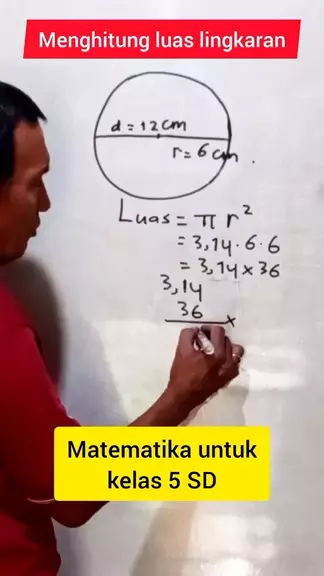 Menghitung luas lingkaran
d = 12 cm
r = 6 cm
Luas = π r²
= 3,14 · 6 · 6
= 3,14 x 36
3,14
36
x
Matematika untuk
kelas 5 SD